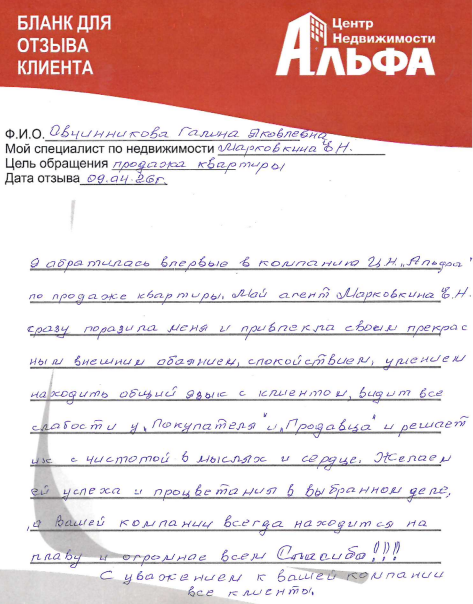 БЛАНК ДЛЯ
ОТЗЫВА
КЛИЕНТА
Центр
Недвижимости
АЛЬФА
Ф.И.О. Овчинникова Галина Яковлевна
Мой специалист по недвижимости Марковкина Е.Н.
Цель обращения продажа квартиры
Дата отзыва 09.04.26г.
Я обратилась впервые в компанию Ц.Н. „Альфа"
по продаже квартиры. Мой агент Марковкина Е.Н.
сразу поразила меня и привлекла своим прекрас
ным внешним обаянием, спокойствием, умением
находить общий язык с клиентом, видит все
слабости у „Покупателя" и „Продавца" и решает
их с чистотой в мыслях и сердце. Желаем
ей успеха и процветания в выбранном деле,
а вашей компании всегда находится на
плаву и огромное всем Спасибо!!!
С уважением к вашей компании
все клиенты.